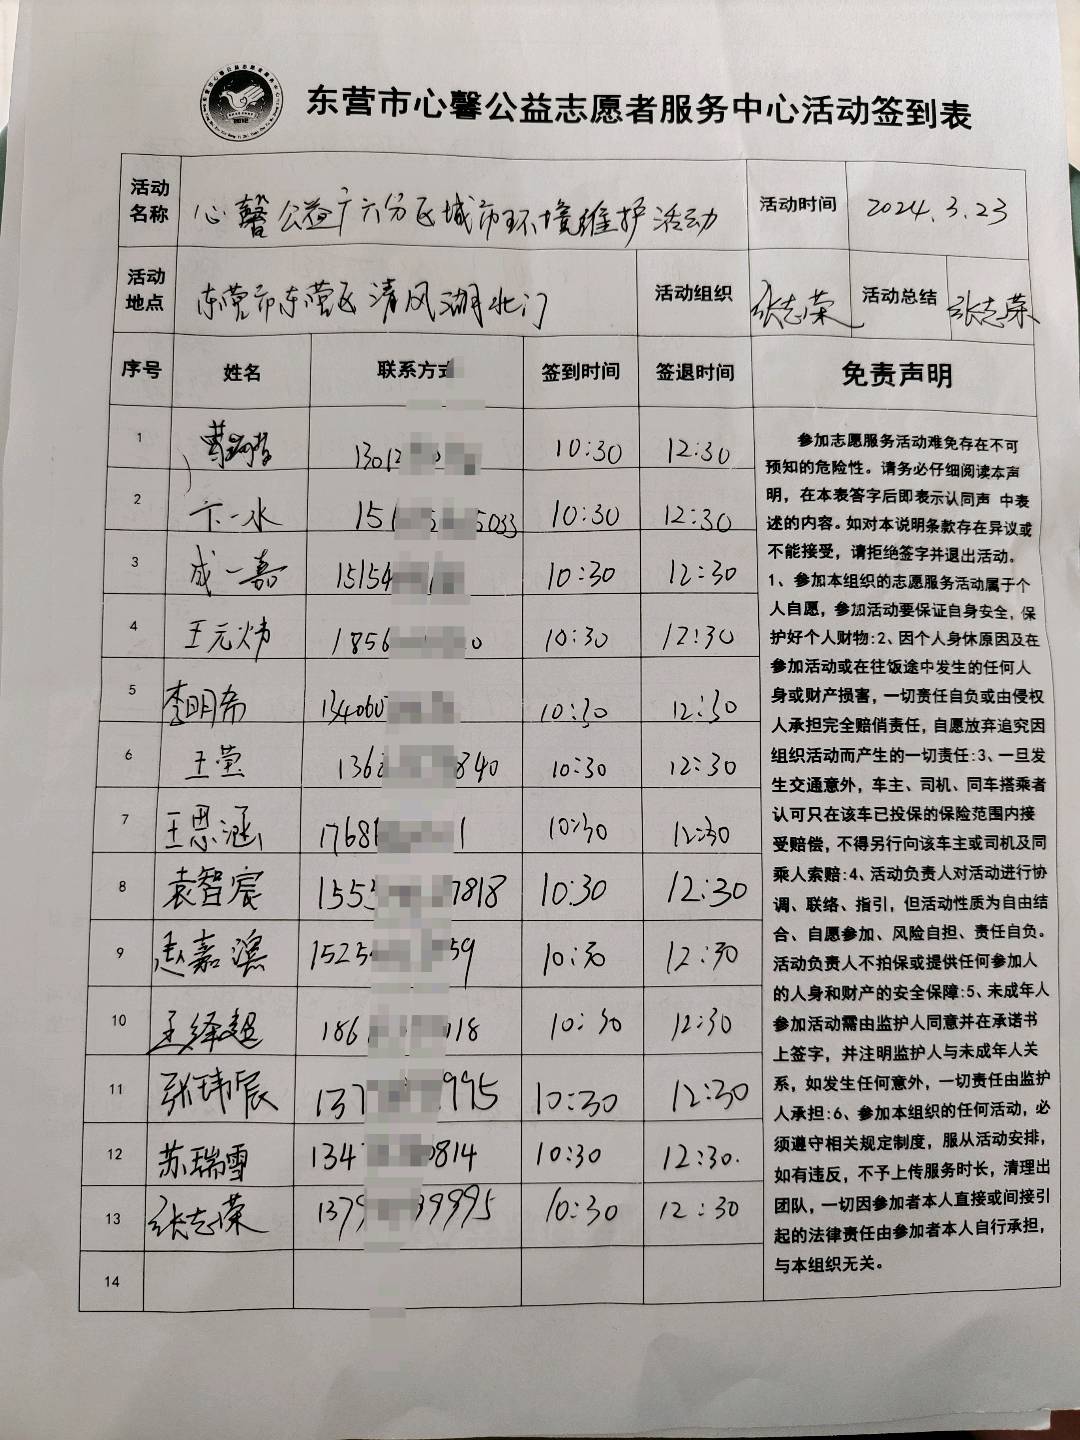 东营市心馨公益志愿者服务中心活动签到表
活动名称 心馨公益广六分区城市环境维护活动 活动时间 2024.3.23
活动地点 东营市东营区清风湖北门 活动组织 张志荣 活动总结 张志荣
序号 姓名 联系方式 签到时间 签退时间 免责声明
1 1301 10:30 12:30
2 卞一水 151 5033 10:30 12:30
3 成一嘉 15154 10:30 12:30
4 王元炜 1856 0 10:30 12:30
5 李明希 134060 10:30 12:30
6 王莹 136 840 10:30 12:30
7 王思涵 1768 1 10:30 12:30
8 袁智宸 155 7818 10:30 12:30
9 赵嘉滨 1525 59 10:30 12:30
10 王绎超 186 118 10:30 12:30
11 张玮宸 137 995 10:30 12:30
12 苏瑞雪 134 0814 10:30 12:30.
13 张志荣 1379 39995 10:30 12:30
14
参加志愿服务活动难免存在不可
预知的危险性。请务必仔细阅读本声
明，在本表答字后即表示认同声 中表
述的内容。如对本说明条款存在异议或
不能接受，请拒绝签字并退出活动。
1、参加本组织的志愿服务活动属于个
人自愿，参加活动要保证自身安全，保
护好个人财物:2、因个人身休原因及在
参加活动或在往饭途中发生的任何人
身或财产损害，一切责任自负或由侵权
人承担完全赔俏责任，自愿放弃追究因
组织活动而产生的一切责任:3、一旦发
生交通意外，车主、司机、同车搭乘者
认可只在该车已投保的保险范围内接
受赔偿，不得另行向该车主或司机及同
乘人索赔:4、活动负责人对活动进行协
调、联络、指引，但活动性质为自由结
合、自愿参加、风险自担、责任自负。
活动负责人不拍保或提供任何参加人
的人身和财产的安全保障:5、未成年人
参加活动需由监护人同意并在承诺书
上签字，并注明监护人与未成年人关
系，如发生任何意外，一切责任由监护
人承担:6、参加本组织的任何活动，必
须遵守相关规定制度，服从活动安排，
如有违反，不予上传服务时长，清理出
团队，一切因参加者本人直接或间接引
起的法律责任由参加者本人自行承担，
与本组织无关。